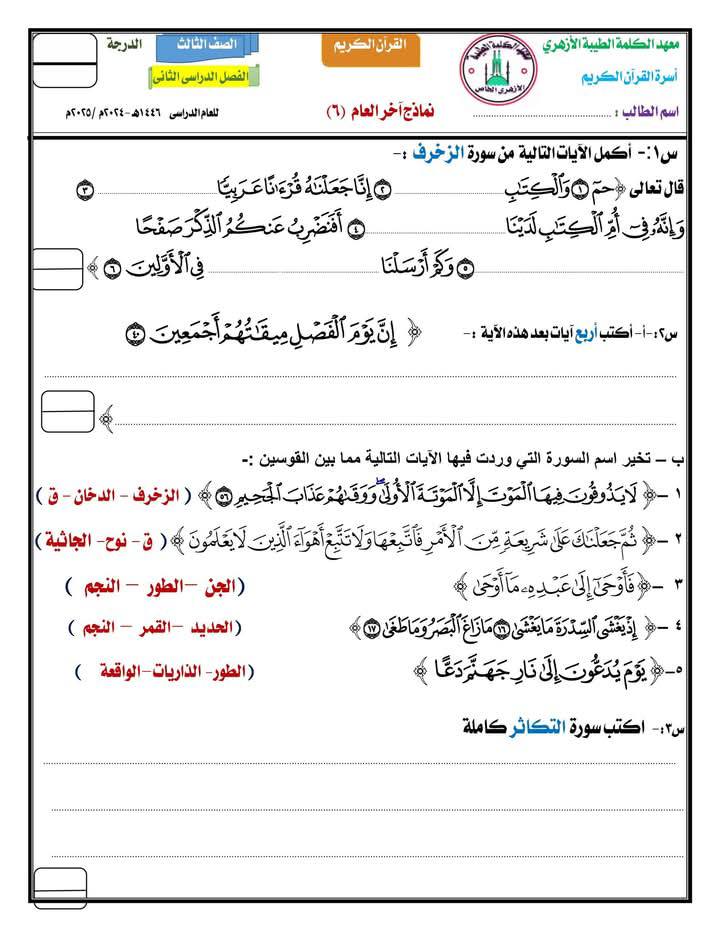 معهد الكلمة الطيبة الأزهري
القرآن الكريم
الصف الثالث
الدرجة
أسرة القرآن الكريم
الفصل الدراسى الثانى
معهد الكلمة الطيبة
الأزهرى الخاص
اسم الطالب : ........................................
نماذج آخر العام (٦)
للعام الدراسى ١٤٤٦هـ -٢٠٢٤م /٢٠٢٥م
س١:- أكمل الآيات التالية من سورة الزخرف :-
قال تعالى ﴿ حمٓ ١ وَٱلۡكِتَٰبِ ........................ ٢ إِنَّا جَعَلۡنَٰهُ قُرۡءَٰنًا عَرَبِيّٗا ........................ ٣
وَإِنَّهُۥ فِيٓ أُمِّ ٱلۡكِتَٰبِ لَدَيۡنَا ........................ ٤ أَفَنَضۡرِبُ عَنكُمُ ٱلذِّكۡرَ صَفۡحًا
........................ ٥ وَكَمۡ أَرۡسَلۡنَا ........................ فِي ٱلۡأَوَّلِينَ ٦ ﴾
س٢:-أ- أكتب أربع آيات بعد هذه الآية :- ﴿ إِنَّ يَوۡمَ ٱلۡفَصۡلِ مِيقَٰتُهُمۡ أَجۡمَعِينَ ٤٠
........................................................................
........................................................................ ﴾
ب – تخير اسم السورة التي وردت فيها الآيات التالية مما بين القوسين :-
١ -﴿ لَا يَذُوقُونَ فِيهَا ٱلۡمَوۡتَ إِلَّا ٱلۡمَوۡتَةَ ٱلۡأُولَىٰۖ وَوَقَىٰهُمۡ عَذَابَ ٱلۡجَحِيمِ ٥٦ ﴾ ( الزخرف - الدخان - ق )
٢ -﴿ ثُمَّ جَعَلۡنَٰكَ عَلَىٰ شَرِيعَةٖ مِّنَ ٱلۡأَمۡرِ فَٱتَّبِعۡهَا وَلَا تَتَّبِعۡ أَهۡوَآءَ ٱلَّذِينَ لَا يَعۡلَمُونَ ﴾ ( ق - نوح - الجاثية )
٣ -﴿ فَأَوۡحَىٰٓ إِلَىٰ عَبۡدِهِۦ مَآ أَوۡحَىٰ ﴾ (الجن – الطور – النجم )
٤ -﴿ إِذۡ يَغۡشَى ٱلسِّدۡرَةَ مَا يَغۡشَىٰ ١٦ مَا زَاغَ ٱلۡبَصَرُ وَمَا طَغَىٰ ١٧ ﴾ (الحديد – القمر – النجم )
٥-﴿ يَوۡمَ يُدَعُّونَ إِلَىٰ نَارِ جَهَنَّمَ دَعًّا ﴾ (الطور - الذاريات – الواقعة )
س٣:- اكتب سورة التكاثر كاملة
........................................................................
........................................................................
........................................................................